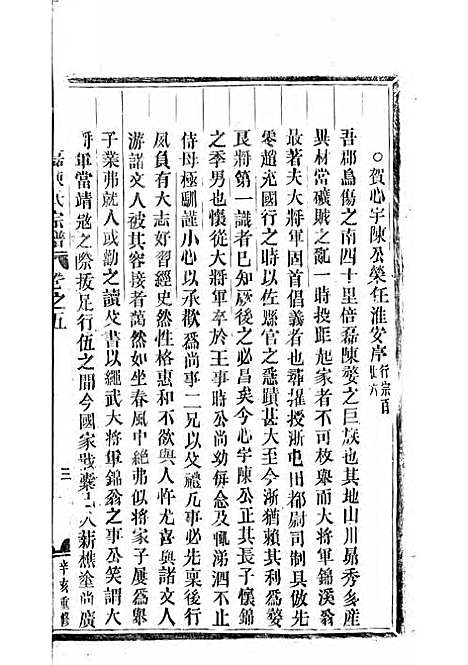 ○賀心宇陳公榮任淮安序行宗百廿六
吾郡烏傷之南四十里倍磊陳婺之巨族也其地山川昴秀多產
異材當礦賊之亂一時投距起家者不可枚舉而大將軍錦溪翁
故著夫大將軍固首倡義者也葬擢授浙屯田都尉司制具倣先
零趙充國行之時以佐縣官之急蹟甚大至今浙猶賴其利爲婺
良將第一識者已知厥後之必昌矣今心宇陳公正其長子懷錦
之季男也懷從大將軍卒於王事時公尚幼每念及輒涕泗不止
侍母極馴謹小心以承歡爲尚事二兄以爻禮凢事必先稟後行
夙有大志好習經史然性格惠和不欲與人忤尤喜與諸文人
游諸文人被其容接者萬然如坐春風中絕弗似將家子屢爲舉
子業弗就人或勸之讀父書以繩武大將軍錦翁之事公笑謂大
將軍當靖寇之際拔足行伍之間今國家戢橐人薪樵塗尚廣
陳大宗譜
卷之五
三
辛亥重修